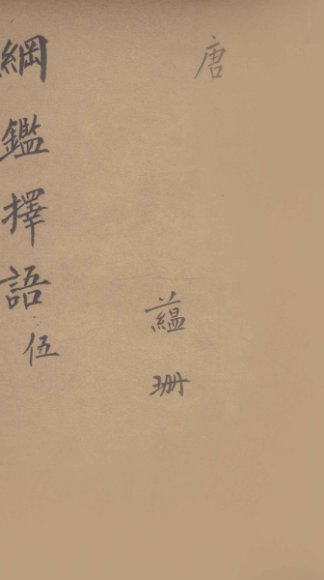 唐
蘊珊
綱鑑擇語 伍